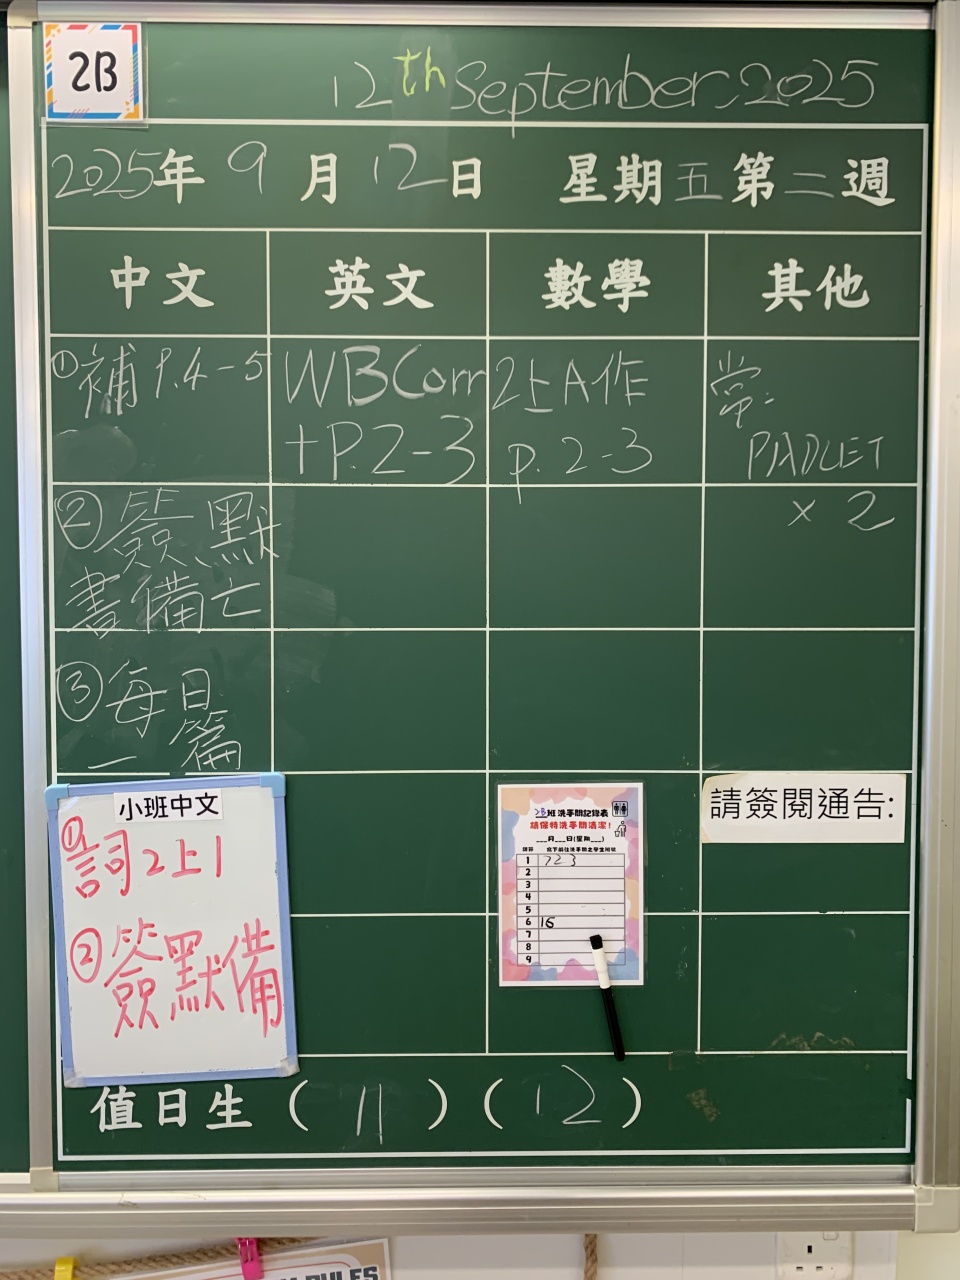 2B
12th September, 2025
2025年 9 月 12 日 星期五第二週
中文 英文 數學 其他
①補 P.4-5
②簽默
書備亡
③每日
一篇
WB Corr
+P.2-3
2上A作
p. 2-3
常:
PADLET
x 2
小班中文
①詞2上1
②簽默備
2B班洗手間記錄表
請保持洗手間清潔!
___月___日(星期___)
課節
1 7 2 3
2
3
4
5
6 16
7
8
9
請簽閱通告:
值日生 ( 11 ) ( 12 )
RULES